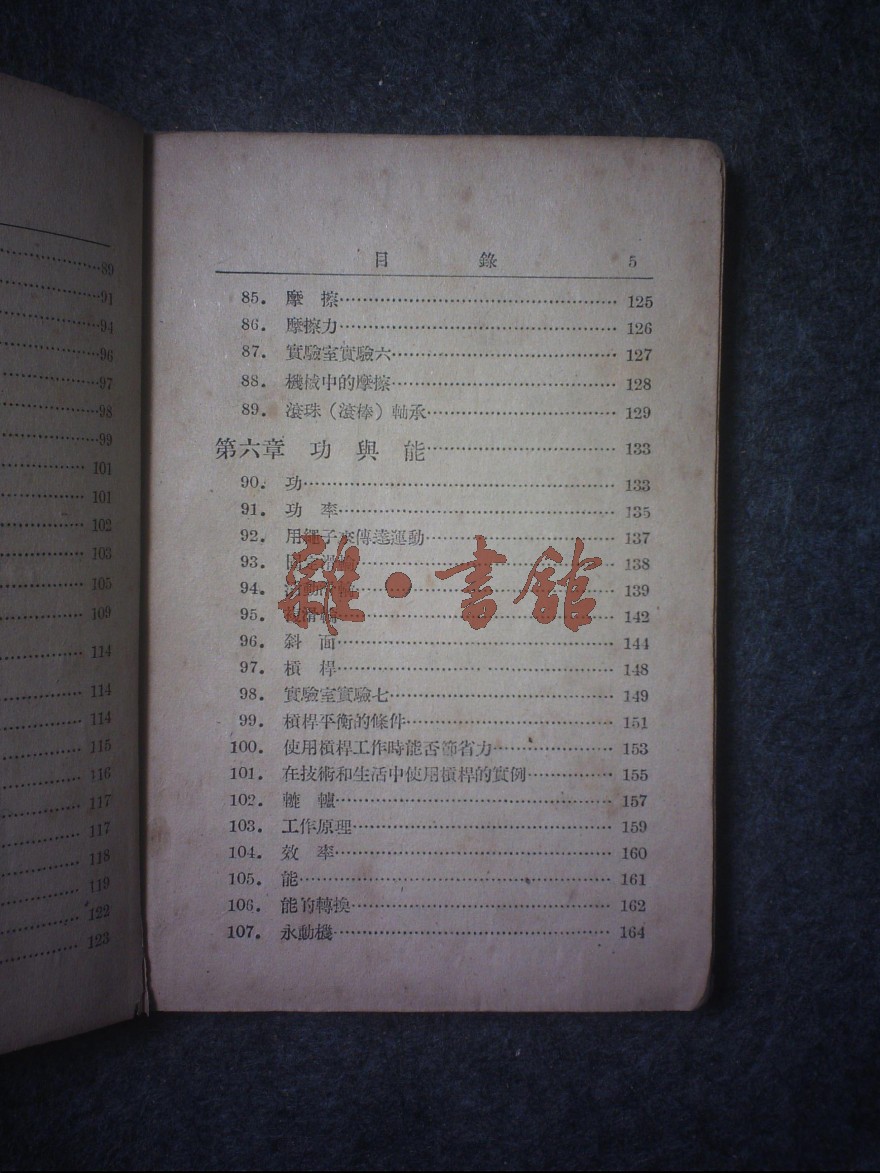 89
91
94
96
97
98
99
101
101
102
103
105
109
114
114
114
115
116
117
117
118
119
122
123
目 錄 5
85. 摩 擦 125
86. 摩擦力 126
87. 實驗室實驗六 127
88. 機械中的摩擦 128
89. 滾珠(滾棒)軸承 129
第六章 功 與 能 133
90. 功 133
91. 功 率 135
92. 用繩子來傳達運動 137
93. 固定滑輪 138
94. 活動滑輪 139
95. 複滑輪 142
96. 斜 面 144
97. 槓 桿 148
98. 實驗室實驗七 149
99. 槓桿平衡的條件 151
100. 使用槓桿工作時能否節省力 153
101. 在技術和生活中使用槓桿的實例 155
102. 轆 轤 157
103. 工作原理 159
104. 效 率 160
105. 能 161
106. 能的轉換 162
107. 永動機 164
雜·書館